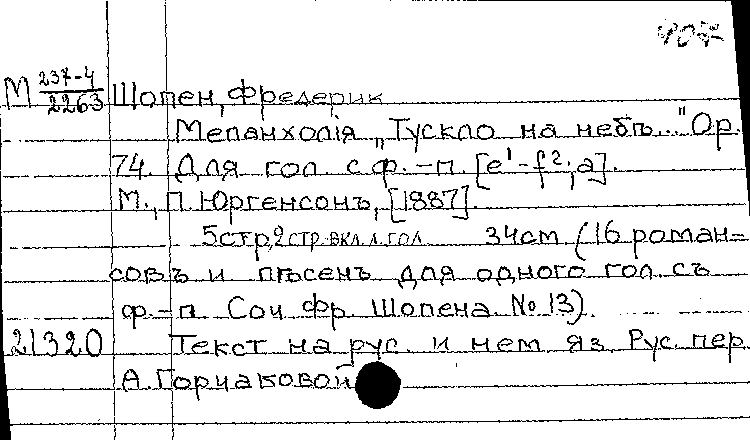 407
М 237-4/2263 Шопен, Фредерик
Меланхолія „Тускло на небѣ..." Ор.
74. Для гол. с ф.-п. [e¹-f²; a].
М., П. Юргенсонъ, [1887].
5стр, 2 стр. вкл. л. гол 34см (16 роман=
совъ и пѣсенъ для одного гол. съ
ф.-п. Соч Фр. Шопена. № 13).
21320 Текст на рус. и нем. яз. Рус. пер.
А. Горчаковой